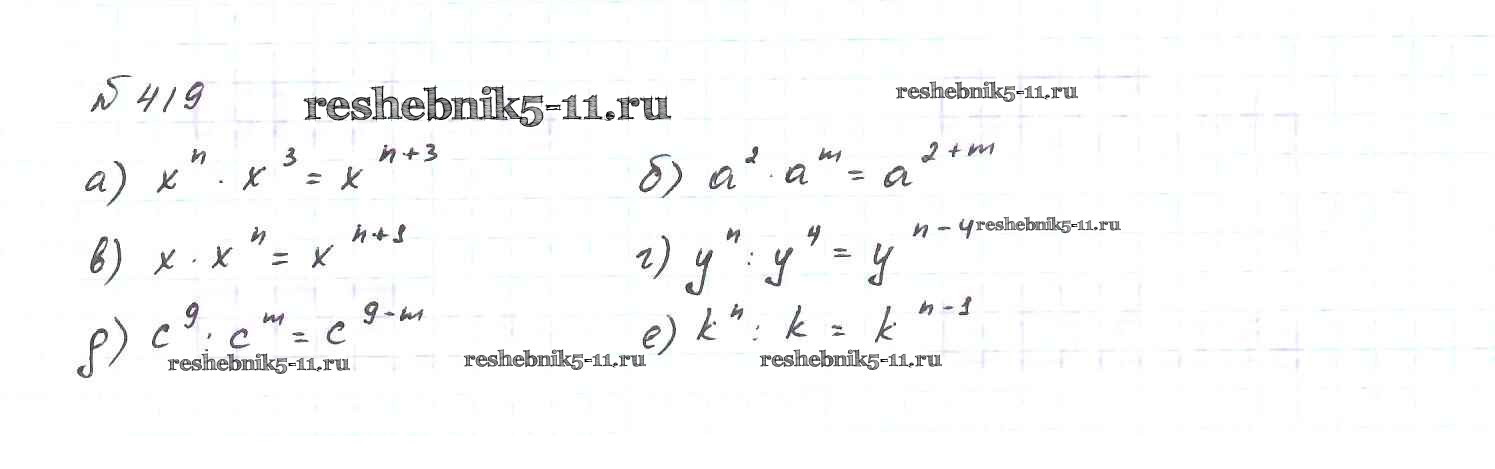 № 419 reshebnik5-11.ru reshebnik5-11.ru
а) xⁿ · x³ = xⁿ⁺³ б) a² · aᵐ = a²⁺ᵐ
в) x · xⁿ = xⁿ⁺¹ г) yⁿ : y⁴ = yⁿ⁻⁴ reshebnik5-11.ru
д) c⁹ : cᵐ = c⁹⁻ᵐ е) kⁿ : k = kⁿ⁻¹
reshebnik5-11.ru reshebnik5-11.ru reshebnik5-11.ru